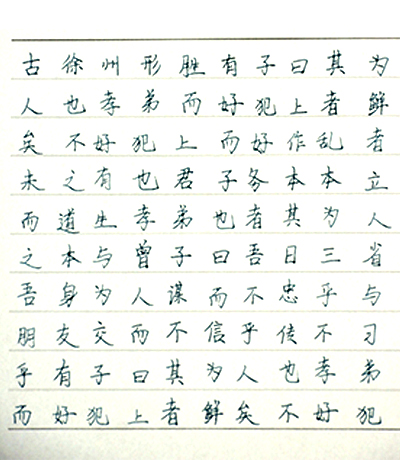 古徐州形胜有子曰其为
人也孝弟而好犯上者鲜
矣不好犯上而好作乱者
未之有也君子务本本立
而道生孝弟也者其为人
之本与曾子曰吾日三省
吾身为人谋而不忠乎与
朋友交而不信乎传不习
乎有子曰其为人也孝弟
而好犯上者鲜矣不好犯